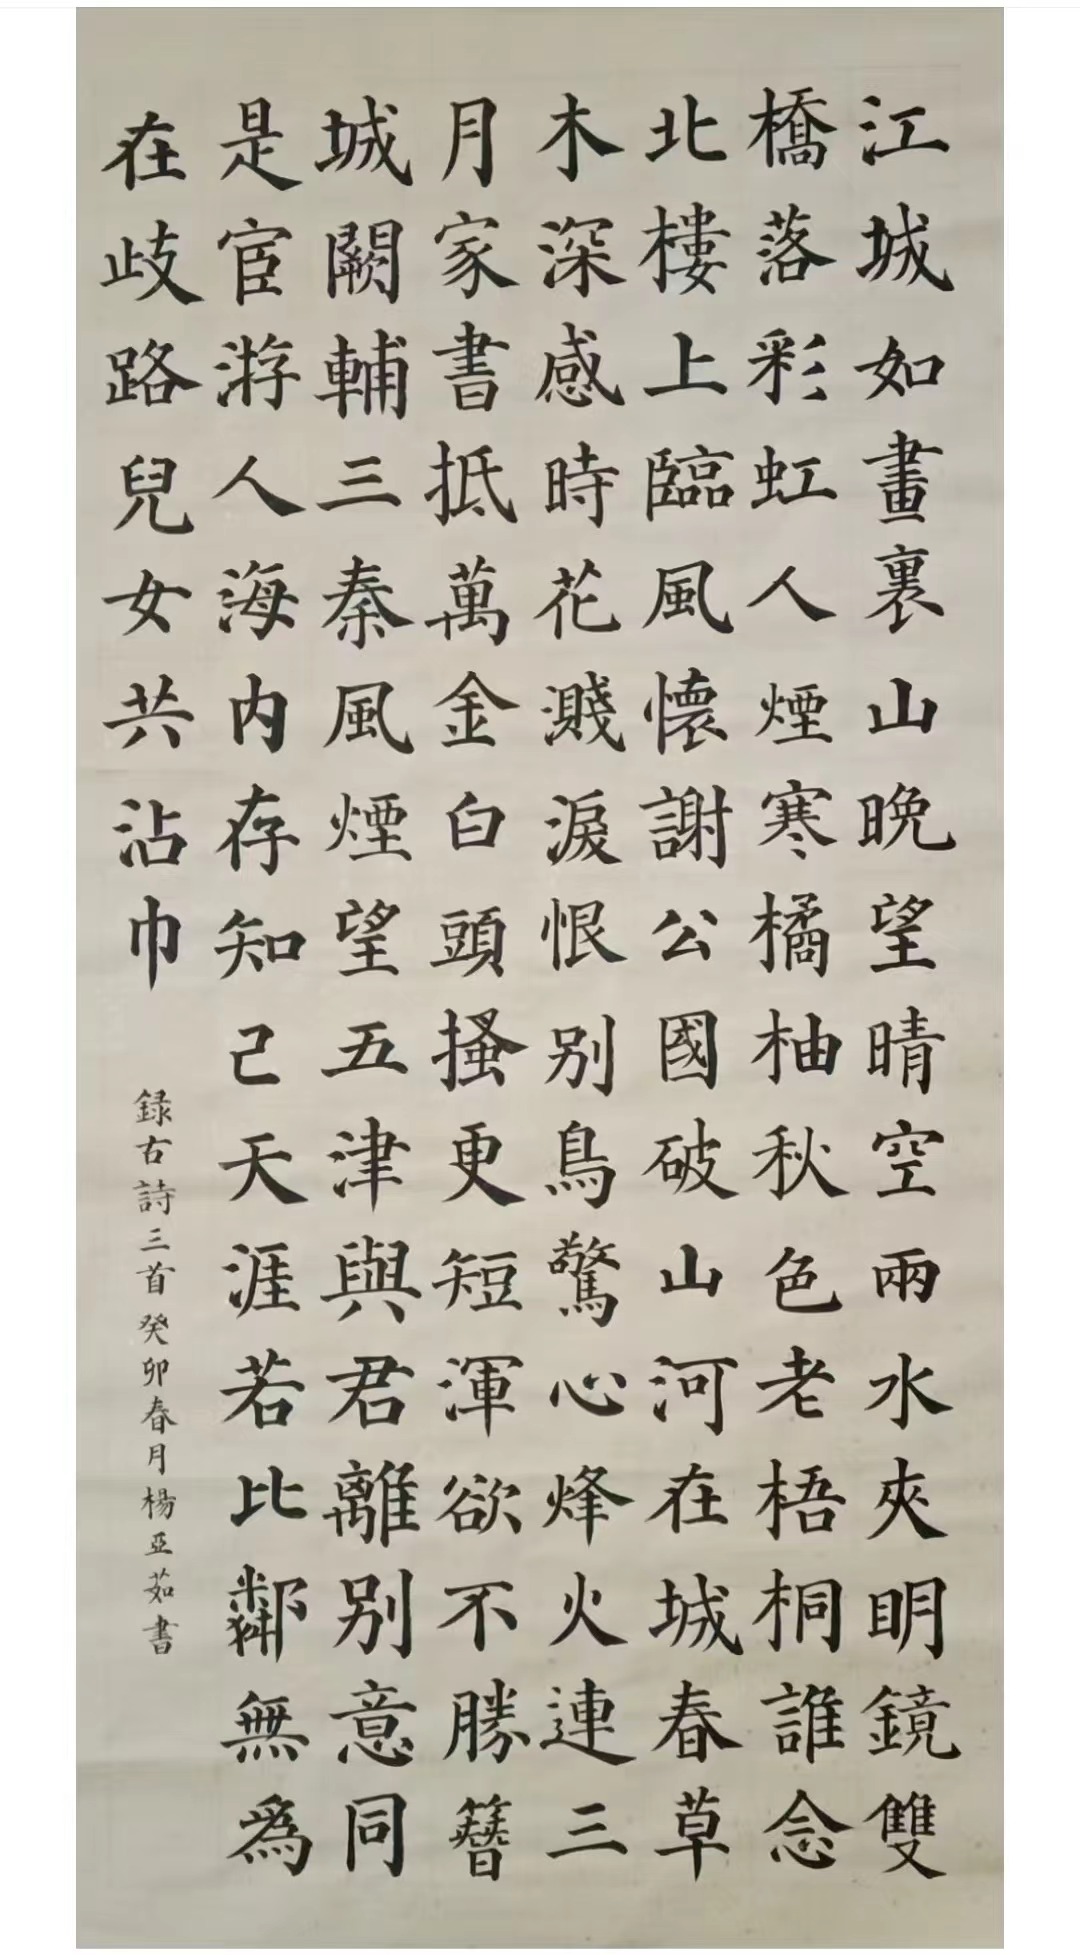 江城如畫裏山晚望晴空兩水夾明鏡雙
橋落彩虹人煙寒橘柚秋色老梧桐誰念
北樓上臨風懷謝公國破山河在城春草
木深感時花濺淚恨别鳥驚心烽火連三
月家書抵萬金白頭搔更短渾欲不勝簪
城闕輔三秦風煙望五津與君離别意同
是宦游人海内存知己天涯若比鄰無爲
在歧路兒女共沾巾
録古詩三首癸卯春月楊亞茹書